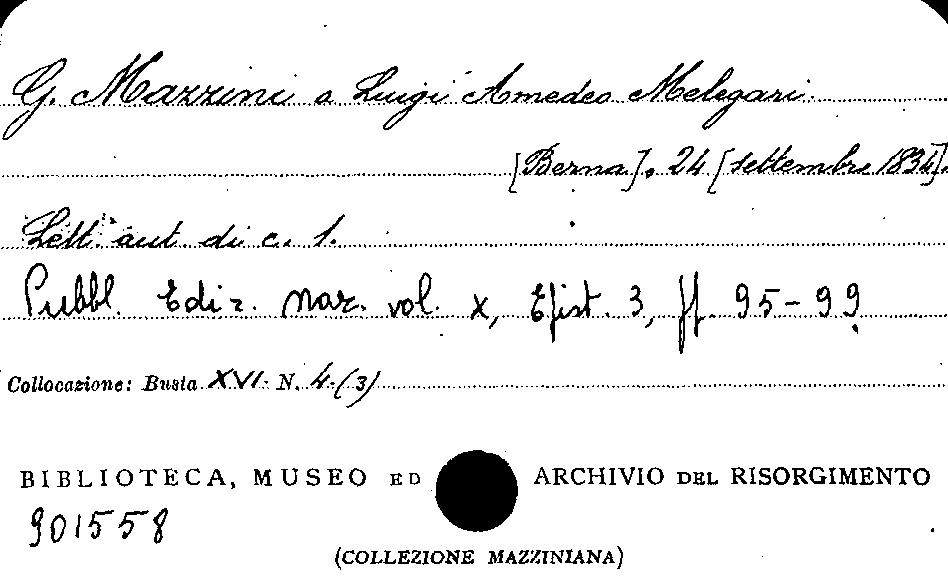 G. Mazzini a Luigi Amedeo Melegari.
[Berna]. 24 [settembre 1834].
Lett. aut. di c. 1.
Pubbl. Ediz. naz. vol. X, Epist. 3, pp. 95-99.
Collocazione: Busta XVI. N. 4.(3)
BIBLIOTECA, MUSEO ED ARCHIVIO DEL RISORGIMENTO
901558
(COLLEZIONE MAZZINIANA)